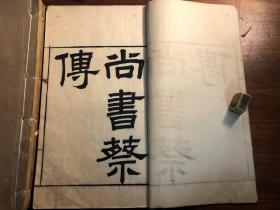 尚書蔡
傳